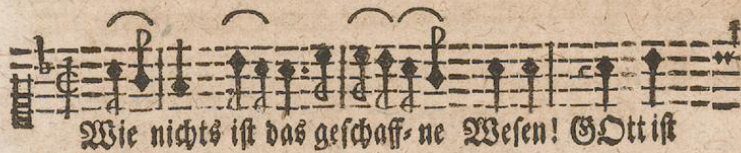 Wie nichts iſt das geſchaff⸗ne Weſen! GOtt iſt